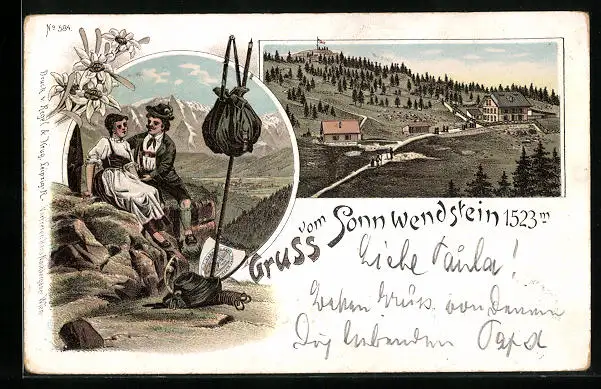 No 584.
Gruss vom Sonnwendstein 1523 m
Liebe Paula!
Besten Gruß von Deinem
Dich liebenden Papa